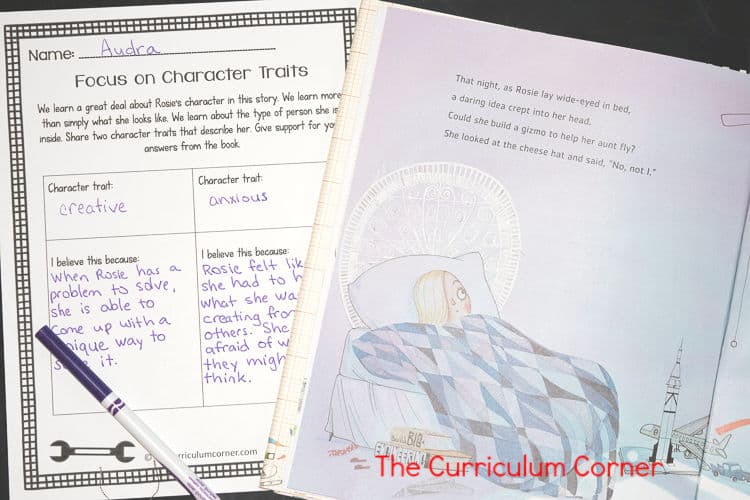 Name: Audra
Focus on Character Traits
We learn a great deal about Rosie's character in this story. We learn more
than simply what she looks like. We learn about the type of person she is
inside. Share two character traits that describe her. Give support for
answers from the book.
Character trait:
creative
I believe this because:
When Rosie has a
problem to solve,
she is able to
come up with a
unique way to
it.
Character trait:
anxious
I believe this because:
Rosie felt
she had to
what she
creating
others. She
afraid of
they
think.
riculumcorner.com
That night, as Rosie lay wide-eyed in bed,
a daring idea crept into her head.
Could she build a gizmo to help her aunt fly?
She looked at the cheese hat and said, "No, not I."
BIG
ENGINEERING
The Curriculum Corner